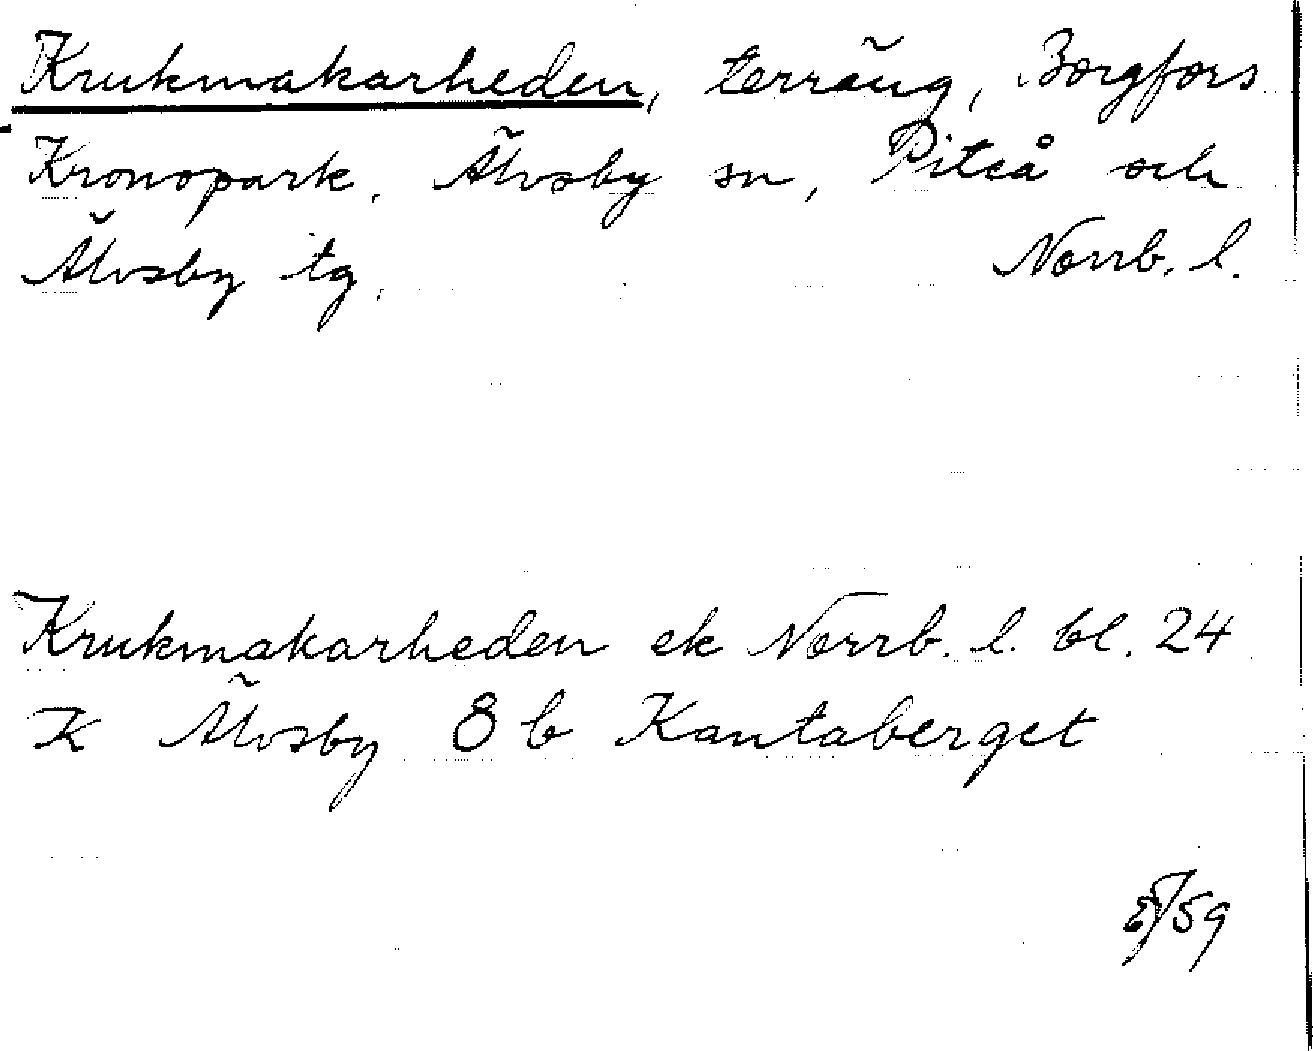 Krukmakarheden, terräng, Borgfors
Kronopark, Älvsby sn, Piteå och
Älvsby tg. Norrb. l.
Krukmakarheden ek Norrb. l. bl. 24
K Älvsby 8 b Kantaberget
/59